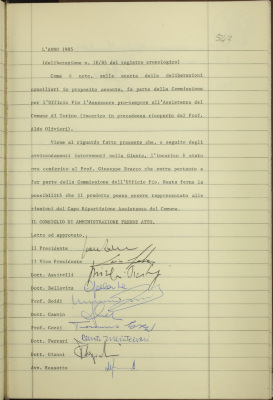 L'ANNO 1985
(deliberazione n. 18/85 del registro cronologico)
Come è noto, sulla scorta delle deliberazioni
consiliari in proposito assunte, fa parte della Commissione
per l'Ufficio Pio l'Assessore pro-tempore all'Assistenza del
Comune di Torino (incarico in precedenza ricoperto dal Prof.
Aldo Olivieri).
Viene al riguardo fatto presente che, a seguito degli
avvicendamenti intervenuti nella Giunta, l'incarico è stato
ora conferito al Prof. Giuseppe Bracco che entra pertanto a
far parte della Commissione dell'Ufficio Pio. Resta ferma la
possibilità che il predetto possa essere rappresentato alle
riunioni dal Capo Ripartizione Assistenza del Comune.
IL CONSIGLIO DI AMMINISTRAZIONE PRENDE ATTO.
Letto ed approvato.
Il Presidente
Il Vice Presidente
Dott.
Dott. Bellavita
Prof.
Dott.
Prof.
Dott. Ferrari
Dott. Gianni
Avv.